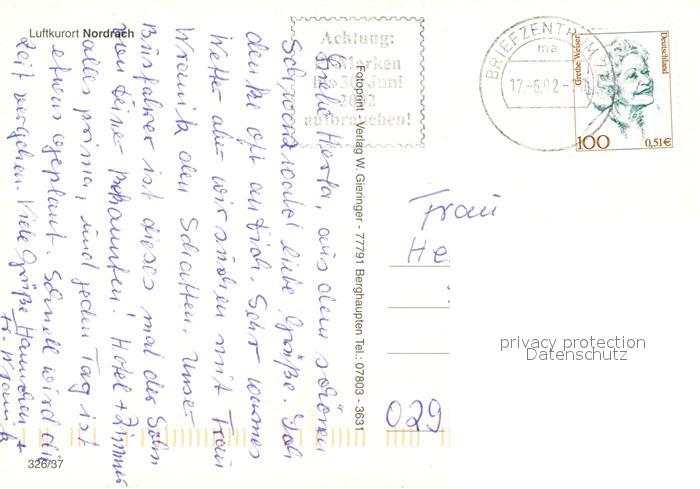 Luftkurort Nordrach
Achtung:
DM-Marken
bis 30. Juni
2002
aufbrauchen!
BRIEFZENTRUM 77
ma
17.-6.02-
Grethe Weiser
Deutschland
100
0,51€
Liebe Herta, aus dem schönen
Schwarzwald liebe Grüße. Ich
denke oft an Dich. Sehr warmes
Wetter aber wir suchen mit Frau
Wramik den Schatten. Unser
Busfahrer ist dieses mal der Sohn
von Deiner Bekannten. Hotel + Zimmer
alles prima, und jeden Tag ist
etwas geplant. Schnell wird die
Zeit vergehen. Viele Grüße Hannchen +
Fr. Wramik
Fotoprint - Verlag W. Gieringer - 77791 Berghaupten Tel.: 07803 - 3631
Frau
He
029
privacy protection
Datenschutz
326/37